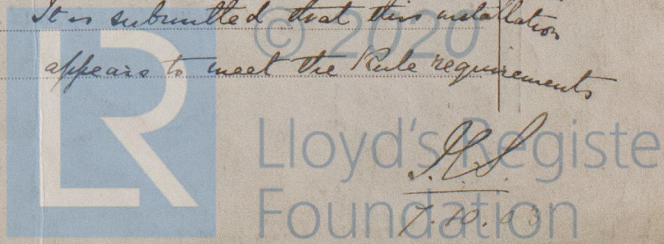 It is submitted that this installation
appears to meet the Rule requirements
© 2020
LR
Lloyd's Registe
Foundation
J.S.
7.10.